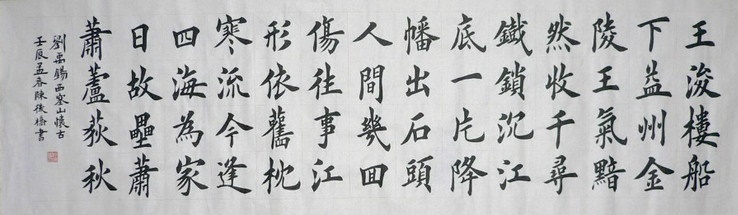 王浚樓船
下益州金
陵王氣黯
然收千尋
鐵鎖沉江
底一片降
幡出石頭
人間幾囬
傷往事江
形依舊枕
寒流今逢
四海為家
日故壘蕭
蕭蘆荻秋
劉禹錫西塞山懷古
壬辰孟春陳書